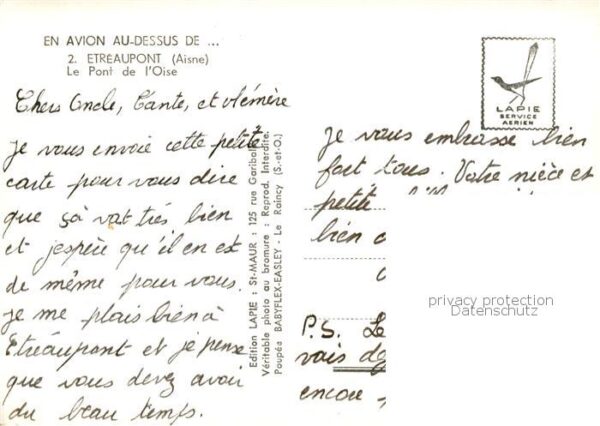 EN AVION AU-DESSUS DE ...
2. ETREAUPONT (Aisne)
Le Pont de l'Oise
Chers Oncle, Tante, et Mémère
Je vous envoie cette petite
carte pour vous dire
que ça vat très bien
et j'espère qu'il en est
de même pour vous.
Je me plais bien à
Etréaupont et je pense
que vous devez avoir
du beau temps.
Edition LAPIE : St-MAUR : 125 rue Garibaldi
Véritable photo au bromure : Reprod. Interdite.
Poupée BABYFLEX-EASLEY - Le Raincy (S.-et-O.)
LAPIE
SERVICE
AERIEN
Je vous embrasse bien
fort tous. Votre nièce et
petite
bien
P.S. Le
vais de
encore
privacy protection
Datenschutz